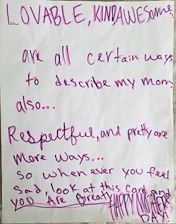 LOVABLE, KIND, AWESOME
are all certain ways
to describe my mom
also...
Respectful, and pretty are
more ways...
so when ever you feel
sad, look at this card and
you Are Great
HAPPY MOTHERS
DAY!